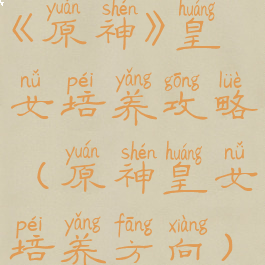 yuán shén huáng
《原神》皇
nǚ péi yǎng gōng lüè
女培养攻略
yuán shén huáng nǚ
(原神皇女
péi yǎng fāng xiàng
培养方向)